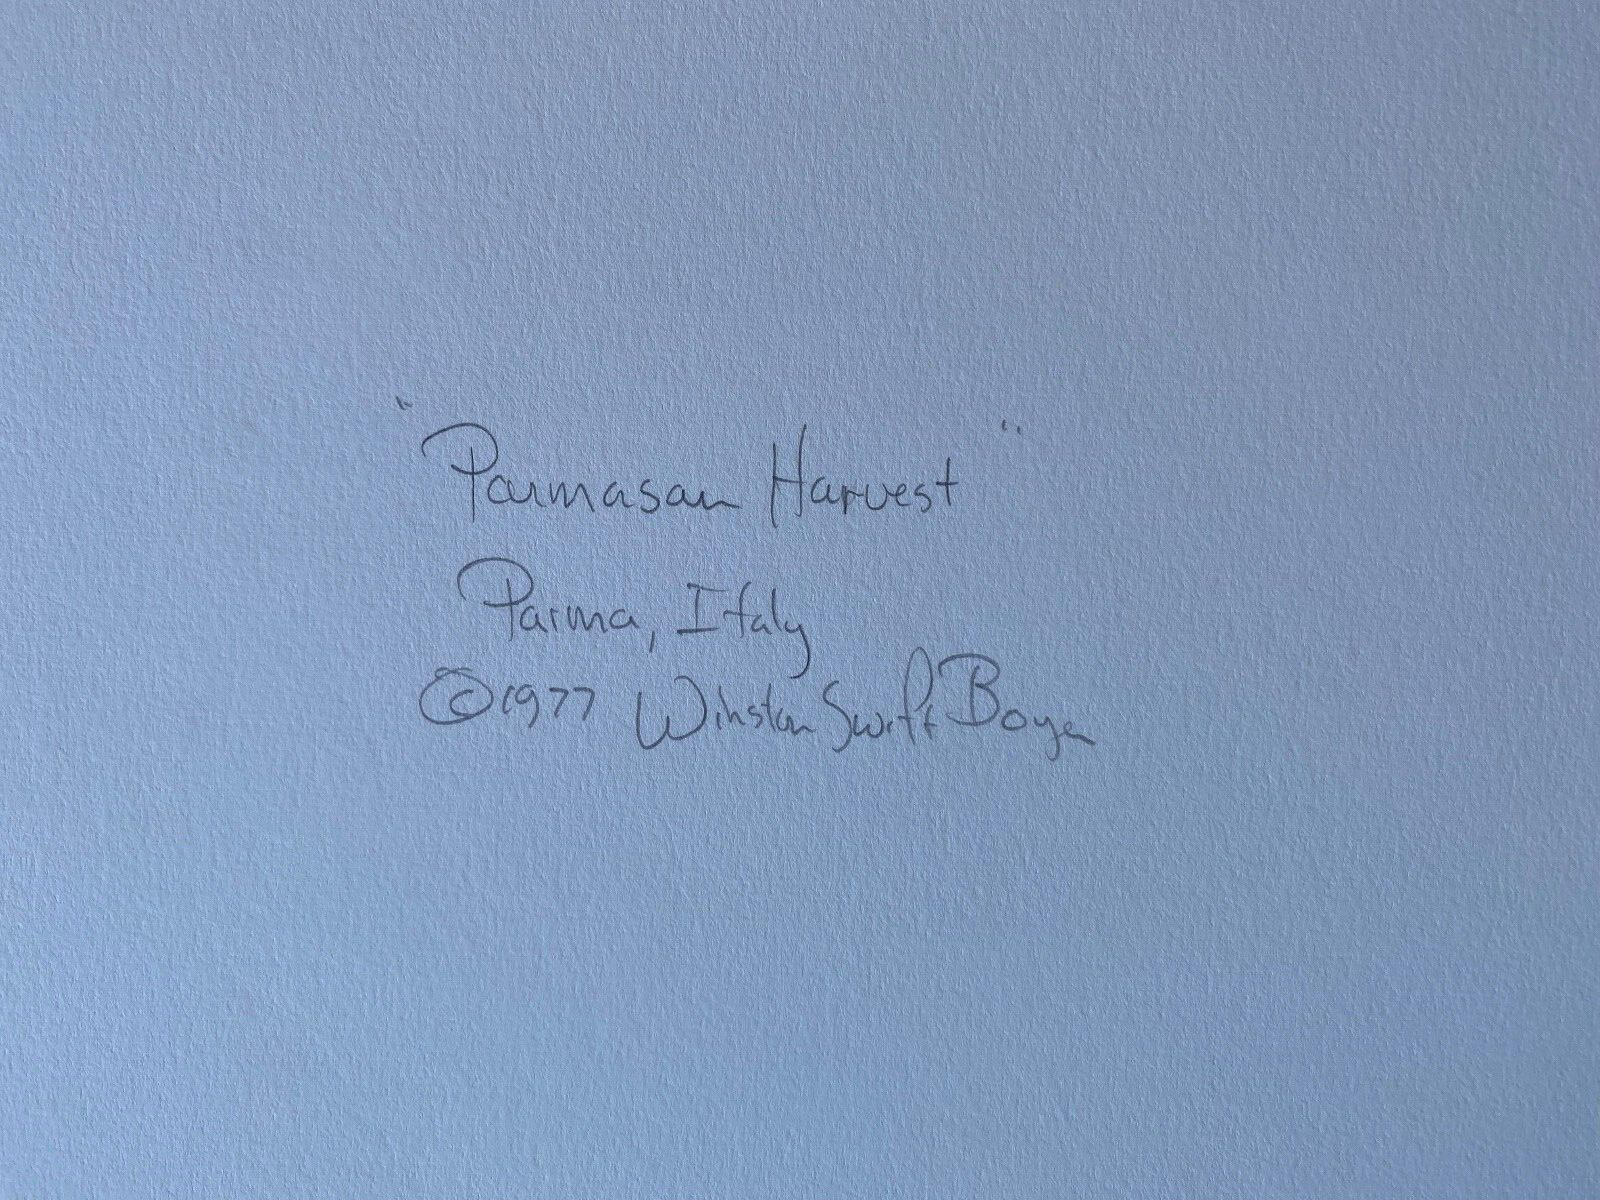 "Parmasan Harvest"
Parma, Italy
©1977 Winston Swift Boyer